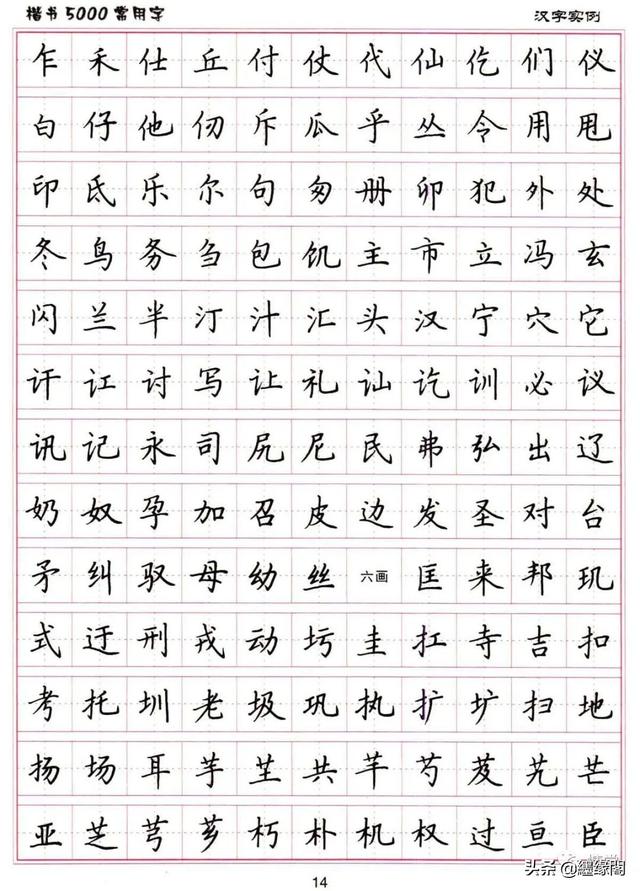 楷书5000常用字 汉字实例
乍 禾 仕 丘 付 仗 代 仙 仡 们 仪
白 仔 他 仞 斥 瓜 乎 丛 令 用 甩
印 氐 乐 尔 句 匆 册 卯 犯 外 处
冬 鸟 务 刍 包 饥 主 市 立 冯 玄
闪 兰 半 汀 汁 汇 头 汉 宁 穴 它
讦 讧 讨 写 让 礼 讪 讫 训 必 议
讯 记 永 司 尻 尼 民 弗 弘 出 辽
奶 奴 孕 加 召 皮 边 发 圣 对 台
矛 纠 驭 母 幼 丝 六画 匡 来 邦 玑
式 迂 刑 戎 动 圬 圭 扛 寺 吉 扣
考 托 圳 老 圾 巩 执 扩 圹 扫 地
扬 场 耳 芋 芏 共 芊 芍 芨 艽 芒
亚 芝 芎 芗 朽 朴 机 权 过 亘 臣
14
头条@纏缘閣